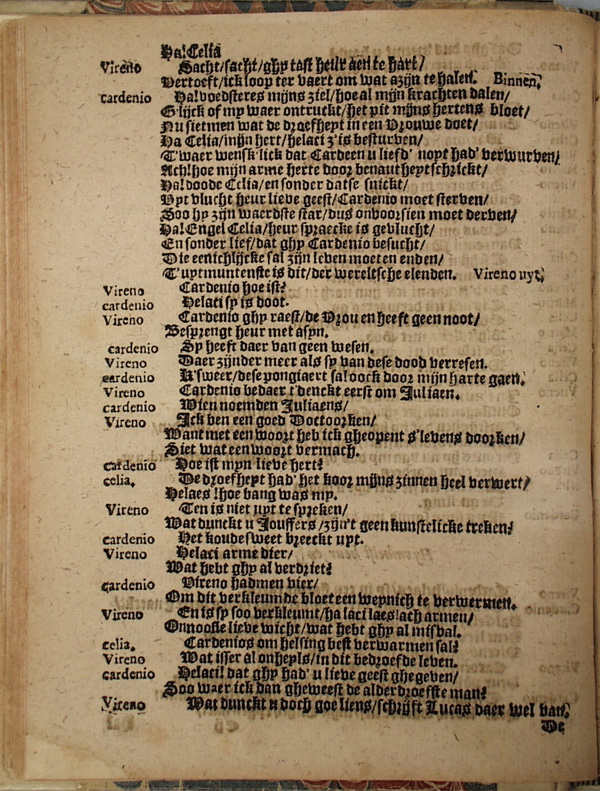 Ha! Celia
Vireno Sacht/sacht/ghy tast heur aen te hart/
Vertoeft/ick loop ter vaert om wat azijn te halen. Binnen.
cardenio Ha! voedsteres mijns ziel/hoe al mijn krachten dalen/
Gelijck of my waer ontruckt/het pit mijns hertens bloet/
Nu sietmen wat de droefheyt in een Vrouwe doet/
Ha Celia/mijn hert/helaci z'is besturven/
T'waer wensklick dat Cardeen u liefd' noyt had' verwurven/
Ach! hoe mijn arme herte door benautheyt schrickt/
Ha! doode Celia/en sonder datse snickt/
Uyt vlucht heur lieve geest/Cardenio moet sterven/
Soo hy zijn waerdste star/dus onvoorsien moet derven/
Ha! Engel Celia/heur spraecke is gevlucht/
En sonder lief/dat ghy Cardenio besucht/
Die eenichlijcke sal zijn leven moeten enden/
T'uytmuntenste is dit/der wereltsche elenden. Vireno uyt.
Vireno Cardenio hoe ist?
cardenio Helaci sy is doot.
Vireno Cardenio ghy raest/de Vrou en heeft geen noot/
Besprengt heur met asyn.
cardenio Sy heeft daer van geen wesen.
Vireno Daer zijnder meer als sy van dese dood verresen.
cardenio K'sweer/dese pongiaert sal oock door mijn harte gaen.
Vireno Cardenio bedaer t'denckt eerst om Juliaen.
cardenio Wien noemden Juliaens/
Vireno Ick ben een goed Doctoorken/
Want met een woort heb ick gheopent s'levens doorken/
Siet wat een woort vermach.
cardenio Hoe ist myn lieve hert?
celia. De droefheyt had' het koor mijns zinnen heel verwert/
Helaes! hoe bang was my.
Vireno Ten is niet uyt te spreken/
Wat dunckt u Jouffers/zijn't geen kunstelicke treken?
cardenio Het koude sweet breeckt uyt.
Vireno Helaci arme dier/
Wat hebt ghy al verdriet?
cardenio Vireno hadmen vier/
Om dit verkleumde bloet een weynich te verwermen.
Vireno En is sy soo verkleumt/ha laci laes! ach armen/
Onnoosle lieve wicht/wat hebt ghy al misval.
celia. Cardenios omhelsing best verwarmen sal?
Vireno Wat isser al onheyls/in dit bedroefde leven.
cardenio Helaci! dat ghy had' u lieve geest ghegeven/
Soo waer ick dan gheweest de alderdroefste man?
Vireno Wat dunckt u doch goe liens/schrijft Lucas daer wel van.
De